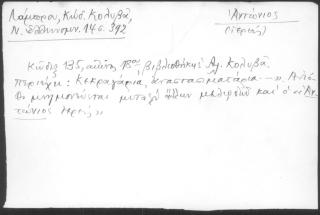 Λάμπρου, Κώδ. Κολυβᾶ,
Ν. Ἑλληνομν. 14 σ. 392
Ἀντώνιος
(ἱερεύς)
Κώδιξ 135, αἰῶνος 18ου, βιβλιοθήκης Ἀλ. Κολυβᾶ.
Περιέχει: Κεκραγάρια, ἀναστασιματάρια
μνημονεύεται μεταξὺ ἄλλων καὶ ὁ «Ἀν-
τώνιος ἱερεύς»